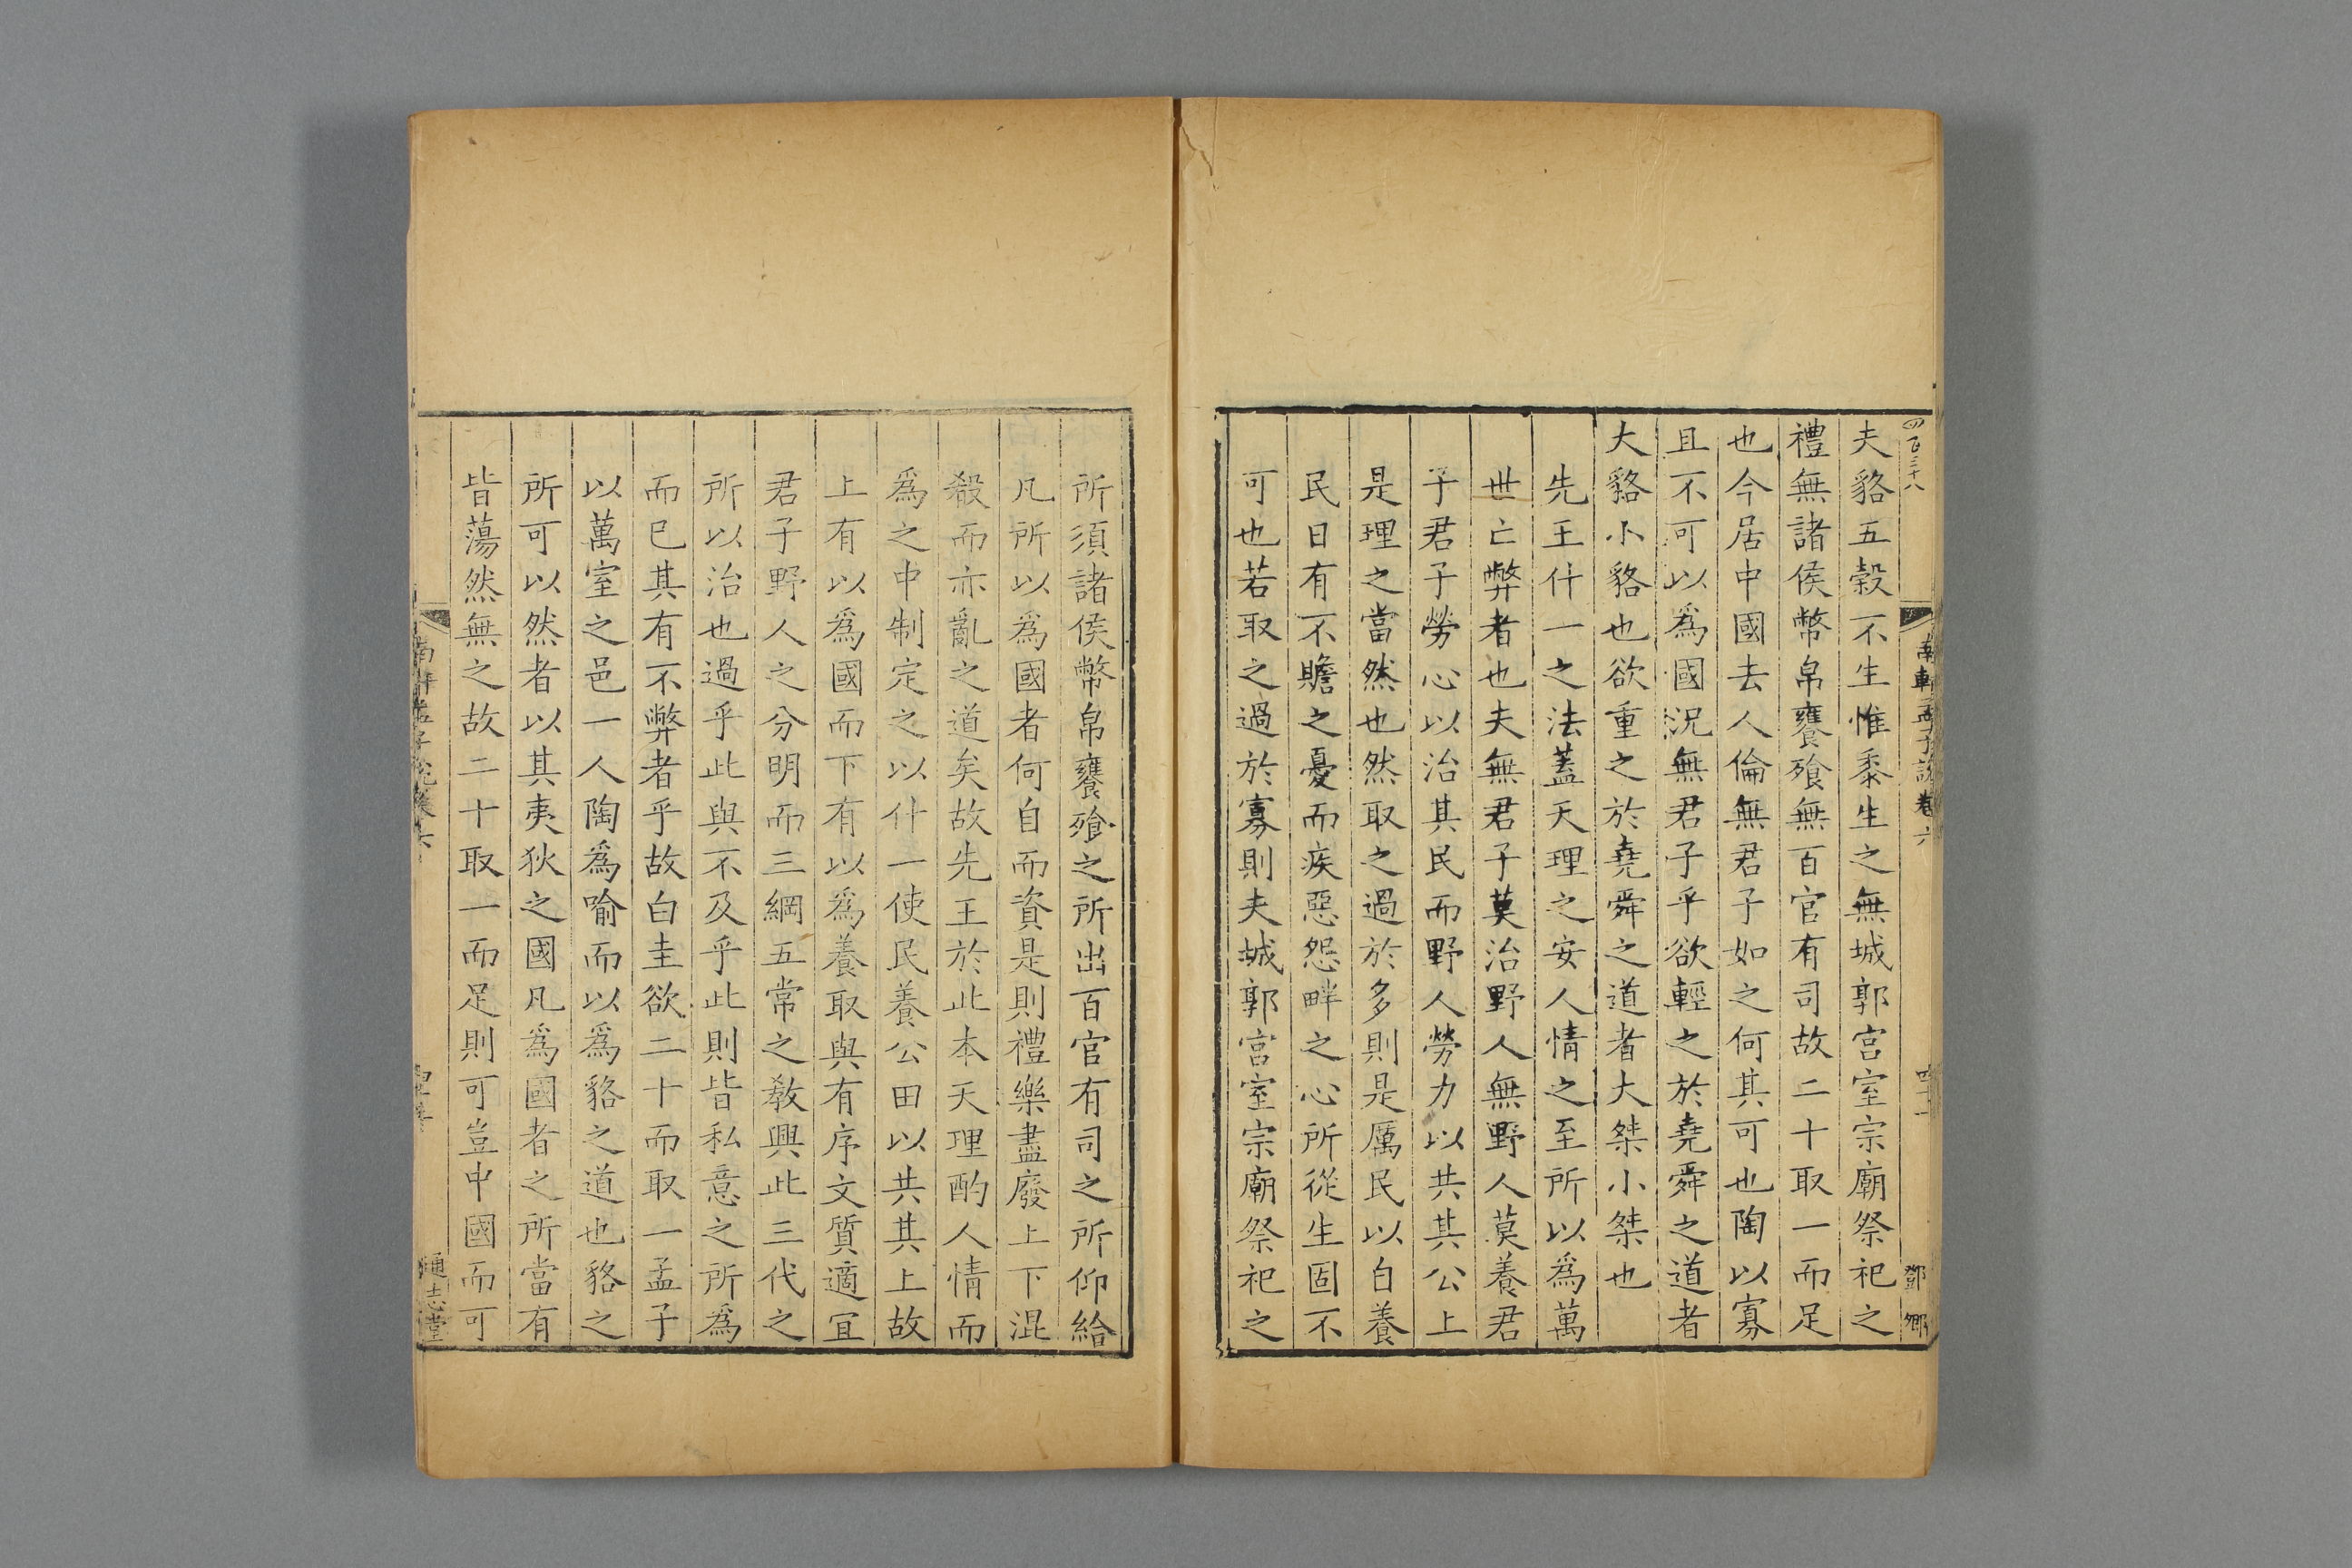 四百三十八
南軒孟子說卷六
鄧卿
夫貉五穀不生惟黍生之無城郭宮室宗廟祭祀之
禮無諸侯幣帛饔飱無百官有司故二十取一而足
也今居中國去人倫無君子如之何其可也陶以寡
且不可以爲國況無君子乎欲輕之於堯舜之道者
大貉小貉也欲重之於堯舜之道者大桀小桀也
先王什一之法蓋天理之安人情之至所以爲萬
世亡弊者也夫無君子莫治野人無野人莫養君
子君子勞心以治其民而野人勞力以共其公上
是理之當然也然取之過於多則是厲民以自養
民日有不贍之憂而疾惡怨畔之心所從生固不
可也若取之過於寡則夫城郭宮室宗廟祭祀之
所須諸侯幣帛饔飱之所出百官有司之所仰給
凡所以爲國者何自而資是則禮樂盡廢上下混
殺而亦亂之道矣故先王於此本天理酌人情而
爲之中制定之以什一使民養公田以共其上故
上有以爲國而下有以爲養取與有序文質適宜
君子野人之分明而三綱五常之敎興此三代之
所以治也過乎此與不及乎此則皆私意之所爲
而已其有不弊者乎故白圭欲二十而取一孟子
以萬室之邑一人陶爲喻而以爲貉之道也貉之
所可以然者以其夷狄之國凡爲國者之所當有
皆蕩然無之故二十取一而足則可豈中國而可
通志堂